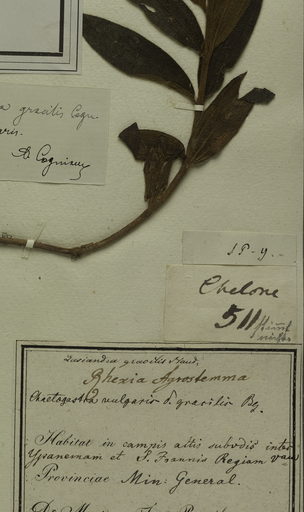 gracilis Cogn.
aris.
A. Cogniaux
18-9.
Chelone
511
Lasiandra gracilis Naud.
Rhexia Agrostemma
Chaetogastra vulgaris δ gracilis
Habitat in campis altis subudis inter
Ypanemam et S. Joannis Regiam
Provinciae Min: General.